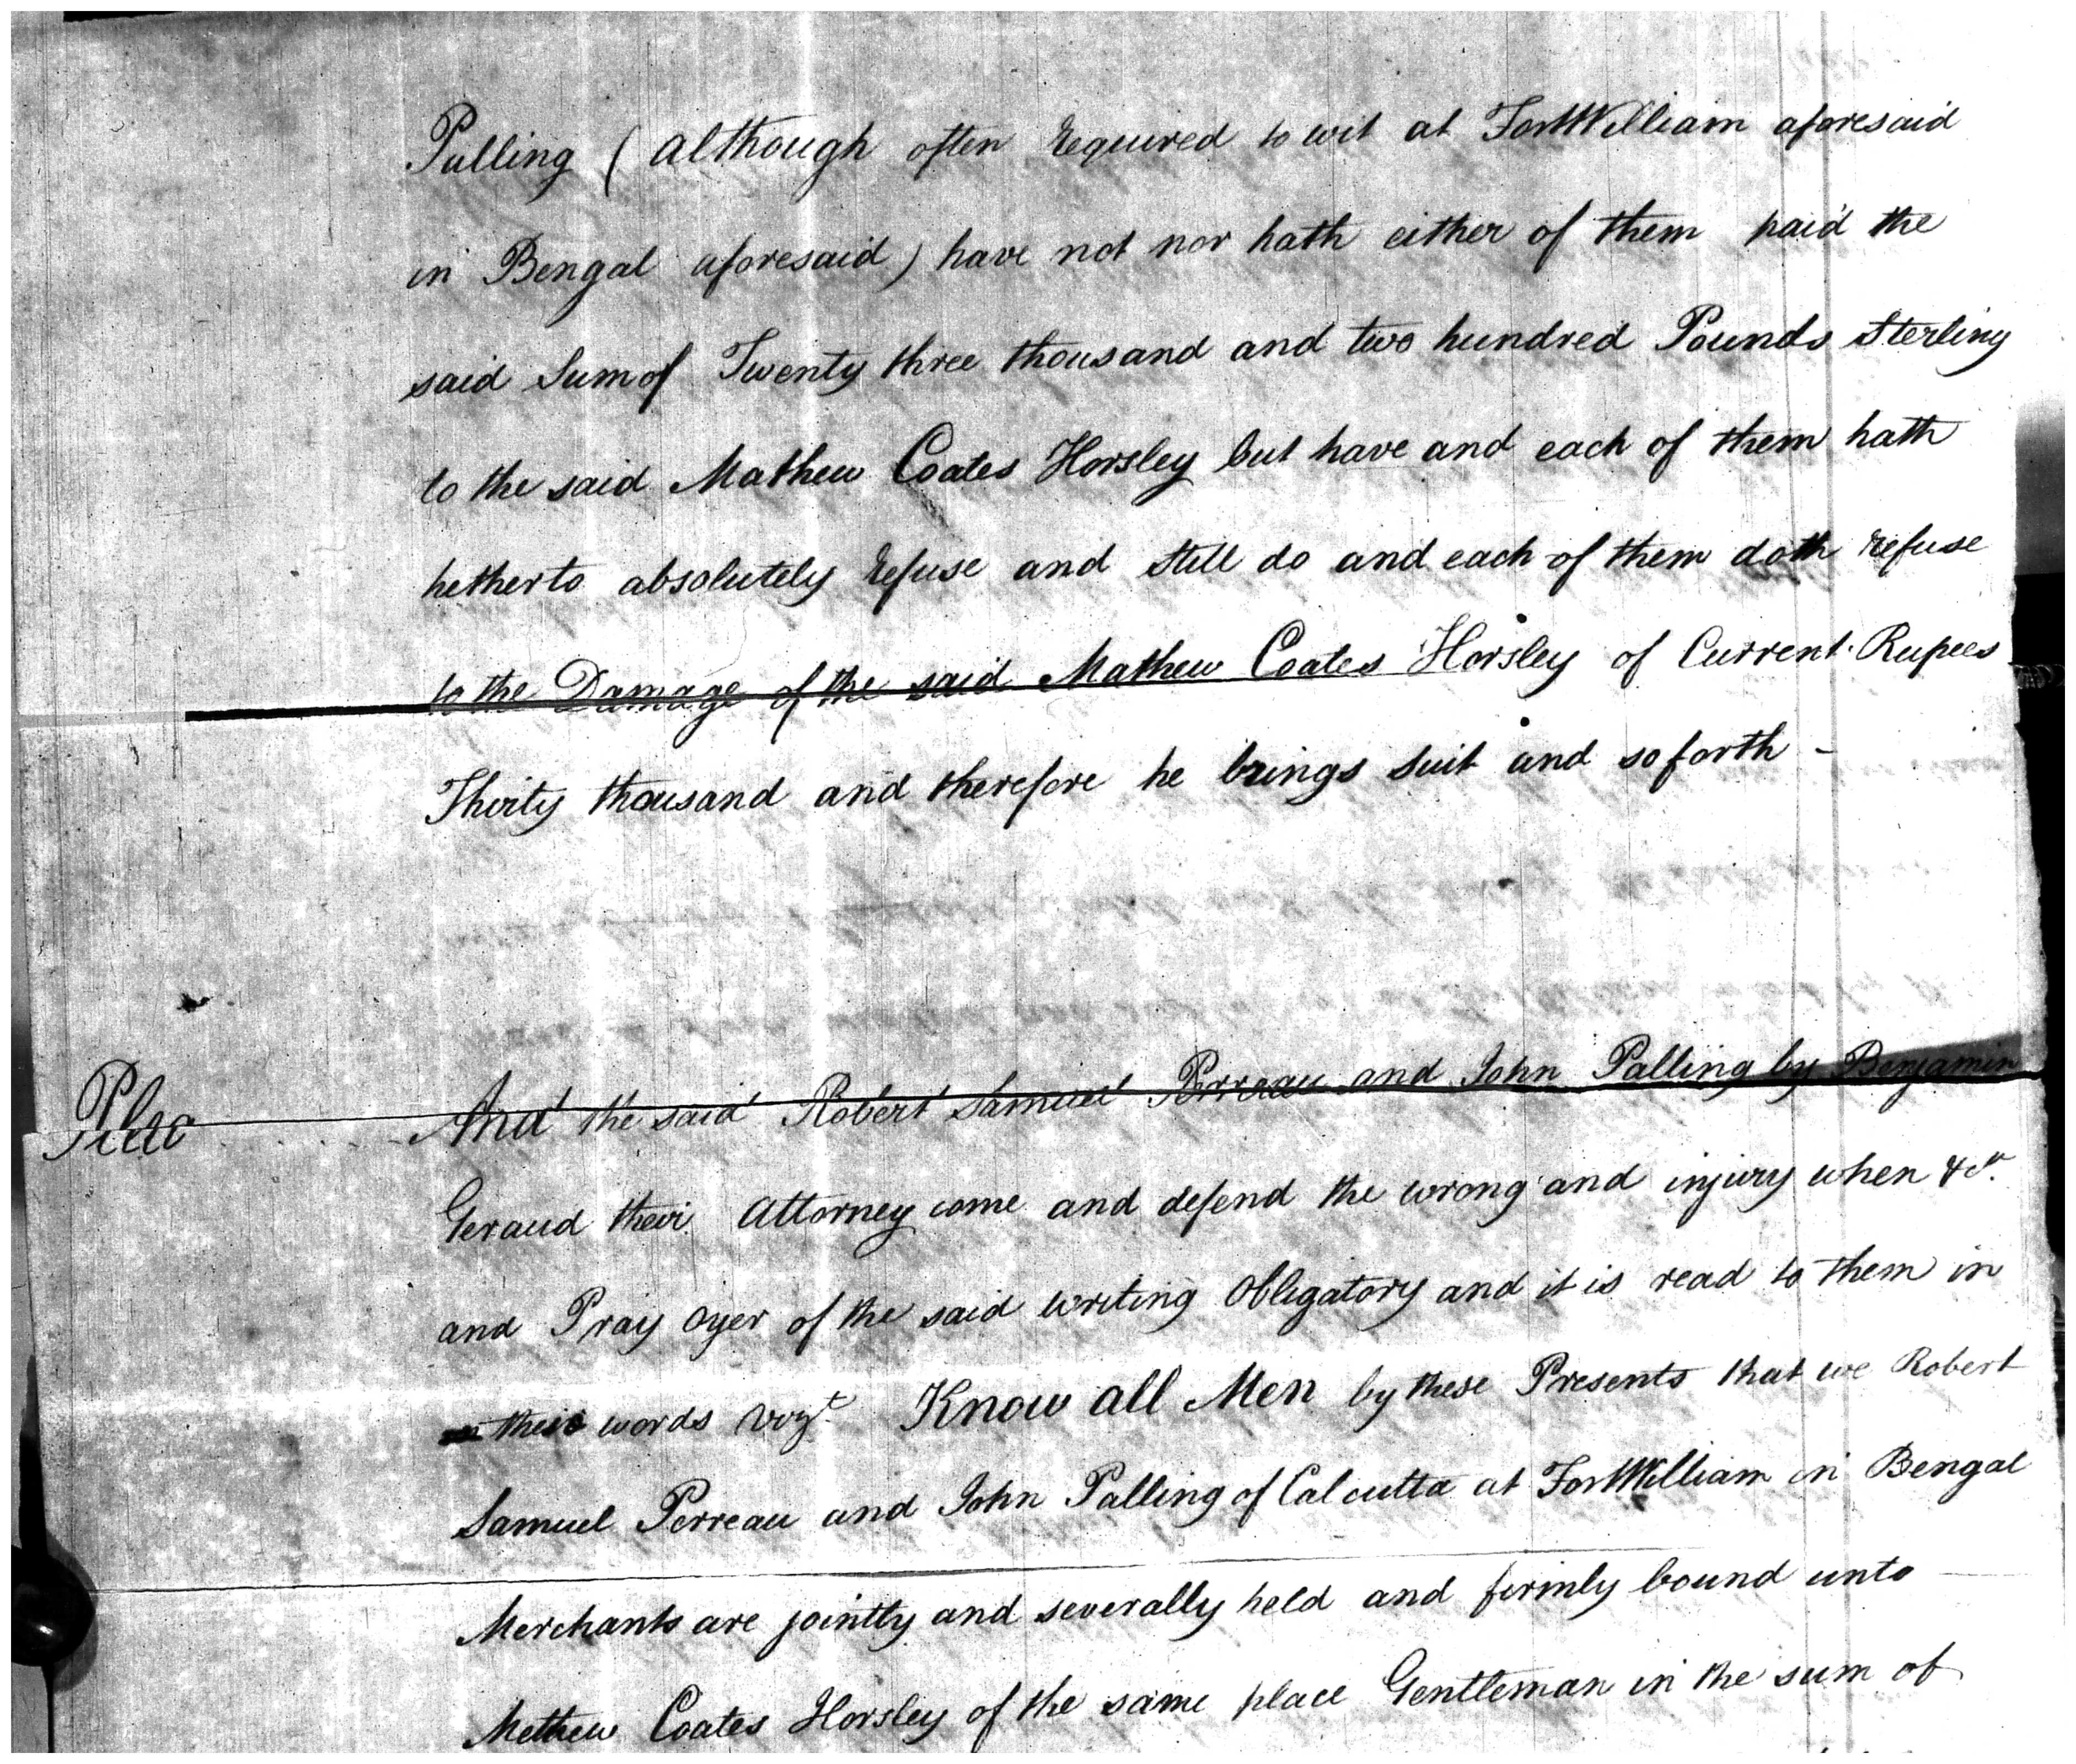 Palling (although often required to wit at Fort William aforesaid
in Bengal aforesaid) have not nor hath either of them paid the
said Sum of Twenty three thousand and two hundred Pounds Sterling
to the said Mathew Coates Horsley but have and each of them hath
hetherto absolutely refuse and still do and each of them doth refuse
to the Damage of the said Mathew Coates Horsley of Current Rupees
Thirty thousand and therefore he brings suit and so forth -
Plea And the said Robert Samuel Perreau and John Palling by Benjamin
Geraud their Attorney come and defend the wrong and injury when &ca.
and Pray Oyer of the said writing Obligatory and it is read to them in
these words vizt. Know all Men by these Presents that we Robert
Samuel Perreau and John Palling of Calcutta at Fort William in Bengal
Merchants are jointly and severally held and firmly bound unto
Methew Coates Horsley of the same place Gentleman in the sum of